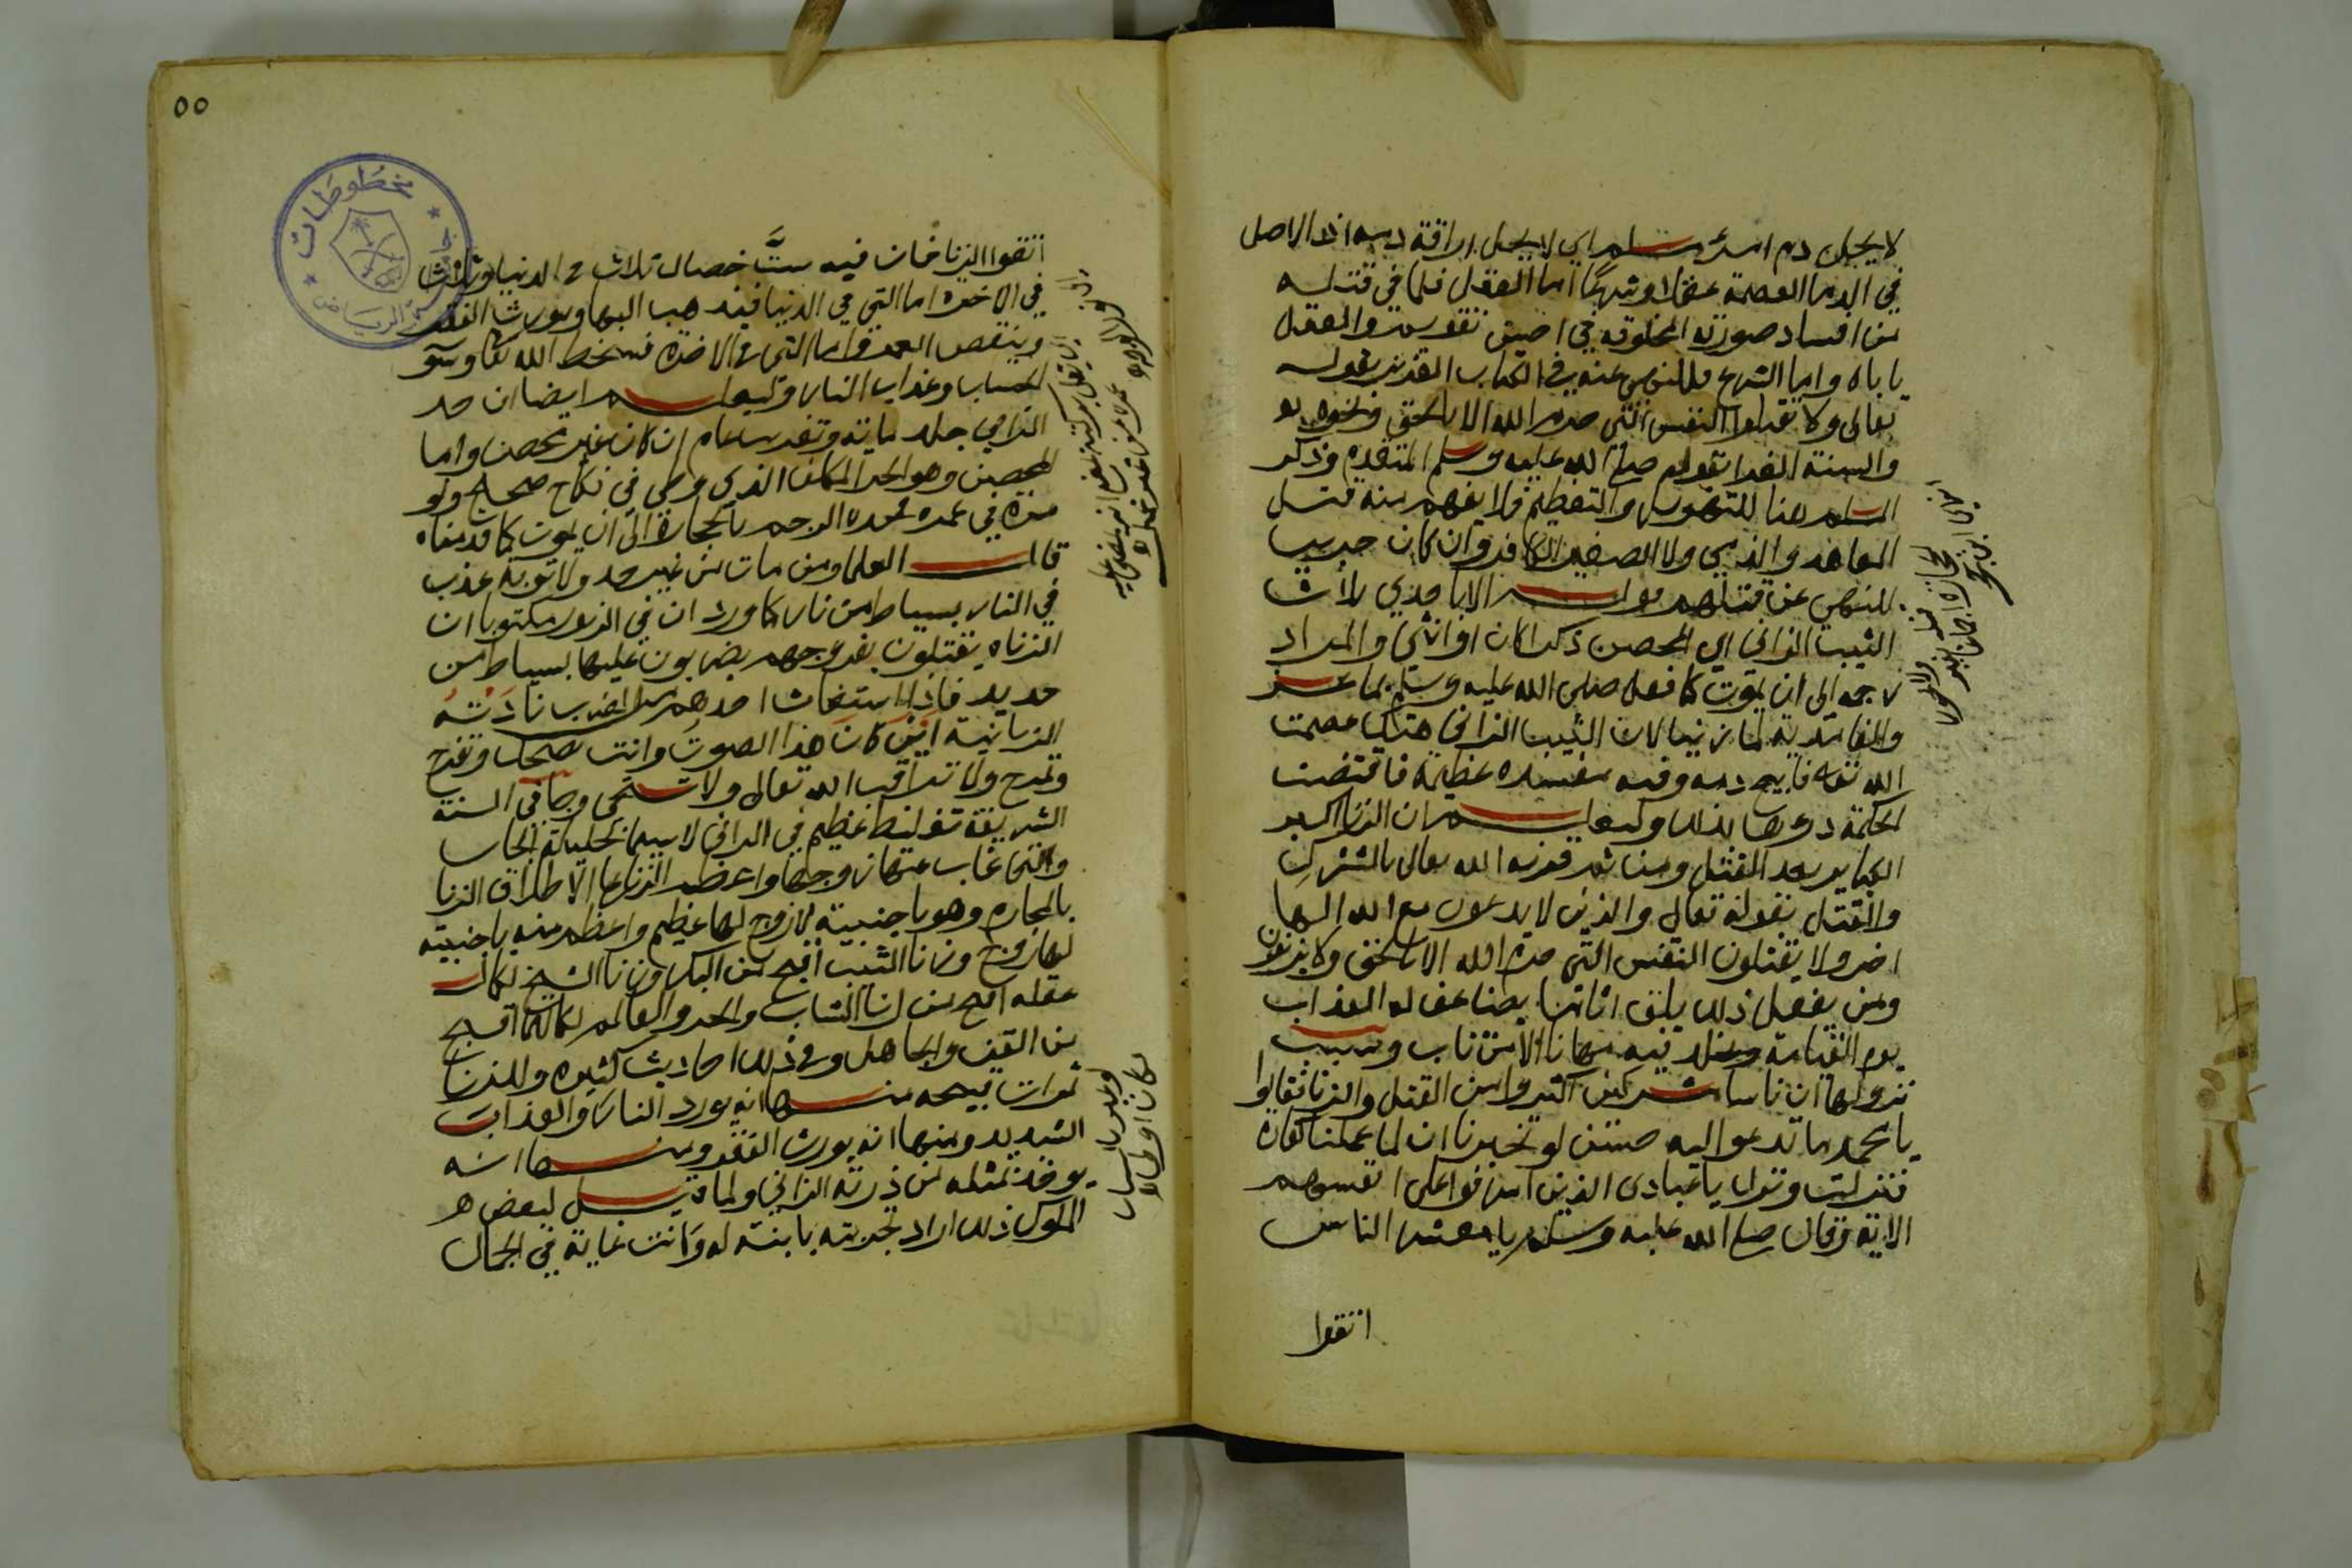 لا يحل دم امرئ مسلم اي لا يحل اراقة دمه اذ الاصل
في الدما العصمة عقلا وشرعا اما العقل فلما في قتله
من افساد صورته المخلوقه في احسن تقويم والعقل
ياباه واما الشرع فللنهي عنه في الكتاب العزيز بقوله
تعالى ولا تقتلوا النفس التي حرم الله الا بالحق ونحوه
والسنة الغرا بقوله صلى الله عليه وسلم المتقدم وذكر
المسلم هنا للتهويل والتعظيم فلا يفهم منه قتل
المعاهد والذمي ولا الصغير الكافر وان كان حربيا
للنهي عن قتلهم قوله الا باحدي ثلاث
الثيب الزاني اي المحصن ذكرا كان او انثى والمراد
رجمه الى ان يموت كما فعل صلى الله عليه وسلم بماعز
والغامدية لما زنيا لان الثيب الزاني هتك عصمت
الله تعه فابيح دمه وفيه مفسده عظيمة فاقتضت
الحكمة دروها بذلك وليعلم ان الزنا اكبر
الكباير بعد القتل ومن ثم قرنه الله تعالى بالشرك
والقتل بقوله تعالى والذين لا يدعون مع الله الها
اخر ولا يقتلون النفس التي حرم الله الا بالحق ولا يزنون
ومن يفعل ذلك يلق اثاما يضاعف له العذاب
يوم القيامة ويخلد فيه مهانا الا من تاب وسبب
نزولها ان ناسا مشركين اكثروا من القتل والزنا فقالوا
يا محمد ما تدعو اليه حسن لو تخبرنا ان لما عملنا كفارة
فنزلت ونزل يا عبادي الذين اسرفوا على انفسهم
الاية وقال صلى الله عليه وسلم يا معشر الناس
اتقوا
٥٥
مخطوطات
الرياض
اتقوا الزنا فان فيه ست خصال ثلاث في الدنيا وثلاث
في الاخره اما التي في الدنيا فيذهب البها ويورث الفقر
وينقص العمر واما التي في الاخرة فسخط الله تعا وسو
الحساب وعذاب النار وليعلم ايضا ان حد
الزاني جلد ماية وتغريب عام ان كان غير محصن واما
المحصن وهو الحر المكلف الذي وطي في نكاح صحيح ولو
مرة في عمره فحده الرجم بالحجارة الى ان يموت كما قدمناه
قال العلما ومن مات من غير حد ولا توبة عذب
في النار بسياط من نار كما ورد ان في الزبور مكتوبا ان
الزناه يعلقون بفروجهم يضربون عليها بسياط من
حديد فاذا استغاث احدهم من الضرب نادته
الزبانية اين كان هذا الصوت وانت تضحك وتفرح
وتمرح ولا تراقب الله تعالى ولا تستحي وجا في السنة
الشريفة تغليظ عظيم في الزاني لا سيما بحليلة الجار
والتي غاب عنها زوجها واعظم الزنا على الاطلاق الزنا
بالمحارم وهو باجنبية لا زوج لها عظيم واعظم منه باجنبية
لها زوج وزنا الثيب اقبح من البكر وزنا الشيخ لكمال
عقله اقبح من زنا الشاب والحر والعالم لكمالهما اقبح
من القن والجاهل وفي ذلك احاديث كثيره وللزنا
ثمرات قبيحه منها انه يورد النار والعذاب
الشديد ومنها انه يورث الفقر ومنها انه
يوخذ بمثله من ذرية الزاني ولما قيل لبعض
الملوك ذلك اراد تجربته بابنة له وكانت غاية في الجمال